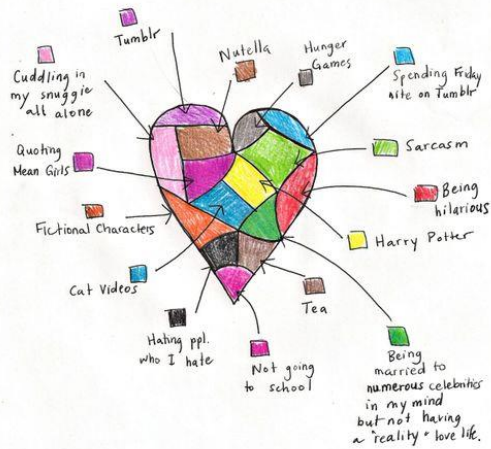 Tumblr
Nutella
Hunger
Games
Cuddling in
my snuggie
all alone
Spending Friday
nite on Tumblr
Quoting
Mean Girls
Sarcasm
Being
hilarious
Fictional Characters
Harry Potter
Cat Videos
Tea
Hating ppl.
who I hate
Not going
to school
Being
married to
numerous celebrities
in my mind
but not having
a "reality" love life.